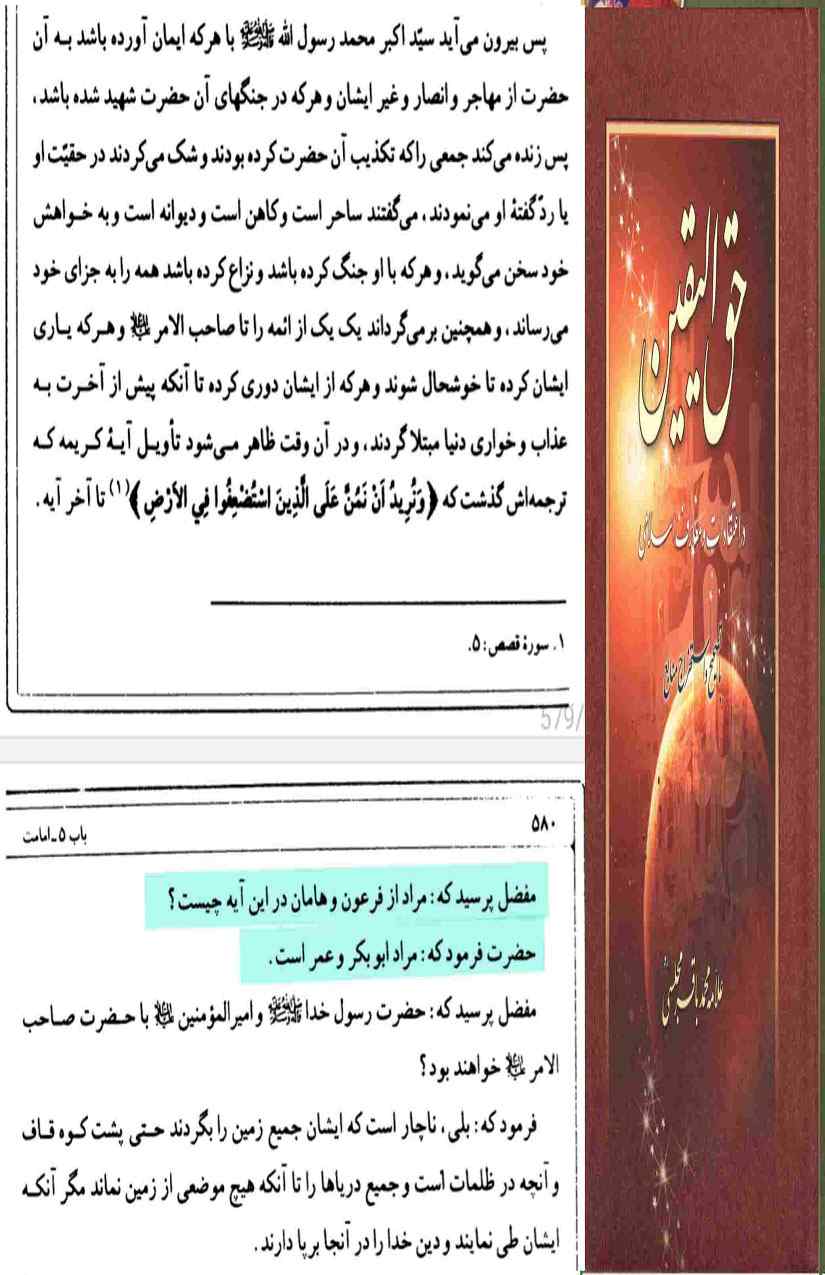 پس بیرون می‌آید سیّد اکبر محمد رسول الله ﷺ با هرکه ایمان آورده باشد به آن
حضرت از مهاجر و انصار و غیر ایشان و هرکه در جنگهای آن حضرت شهید شده باشد،
پس زنده می‌کند جمعی را که تکذیب آن حضرت کرده بودند و شک می‌کردند در حقیّت او
یا ردّ گفتهٔ او می‌نمودند، می‌گفتند ساحر است و کاهن است و دیوانه است و به خواهش
خود سخن می‌گوید، و هرکه با او جنگ کرده باشد و نزاع کرده باشد همه را به جزای خود
می‌رساند، و همچنین برمی‌گرداند یک یک از ائمه را تا صاحب الامر علیه السلام و هرکه یاری
ایشان کرده تا خوشحال شوند و هرکه از ایشان دوری کرده تا آنکه پیش از آخرت به
عذاب و خواری دنیا مبتلا گردند، و در آن وقت ظاهر می‌شود تأویل آیهٔ کریمه که
ترجمه‌اش گذشت که ﴿وَنُرِيدُ أَنْ نَمُنَّ عَلَى الَّذِينَ اسْتُضْعِفُوا فِي الأَرْضِ﴾(۱) تا آخر آیه.
۱. سورهٔ قصص: ۵.
579/
۵۸۰
باب ۵ ـ امامت
مفضل پرسید که: مراد از فرعون و هامان در این آیه چیست؟
حضرت فرمود که: مراد ابوبکر و عمر است.
مفضل پرسید که: حضرت رسول خدا ﷺ و امیرالمؤمنین علیه السلام با حضرت صاحب
الامر علیه السلام خواهند بود؟
فرمود که: بلی، ناچار است که ایشان جمیع زمین را بگردند حتی پشت کوه قاف
و آنچه در ظلمات است و جمیع دریاها را تا آنکه هیچ موضعی از زمین نماند مگر آنکه
ایشان طی نمایند و دین خدا را در آنجا برپا دارند.
حق الیقین
در اعتقادات و معارف اسلامی
تصحیح و استخراج منابع
علامه محمد باقر مجلسی